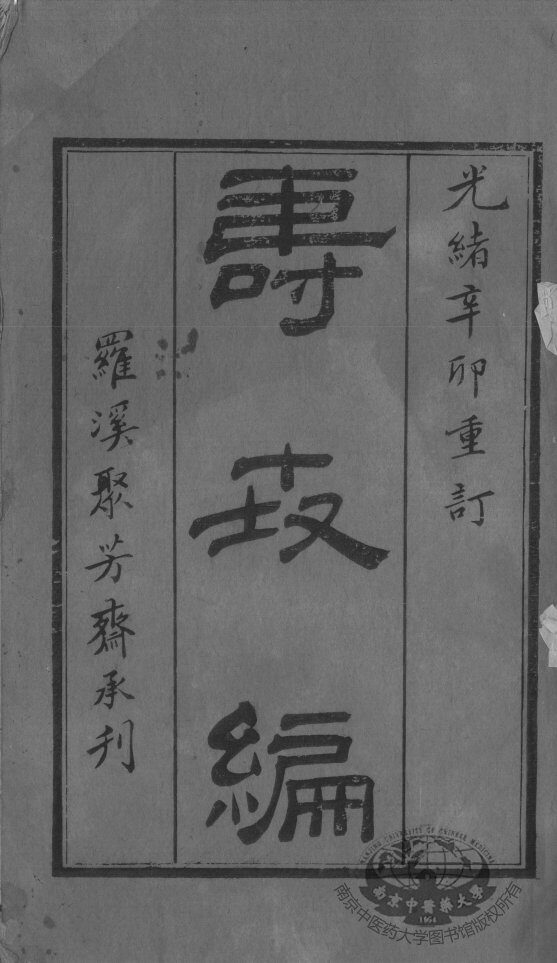 光緒辛卯重訂
壽世編
羅溪聚芳齋承刊
NANJING UNIVERSITY OF CHINESE MEDICINE
南京中醫藥大學
1954
南京中医药大学图书馆版权所有